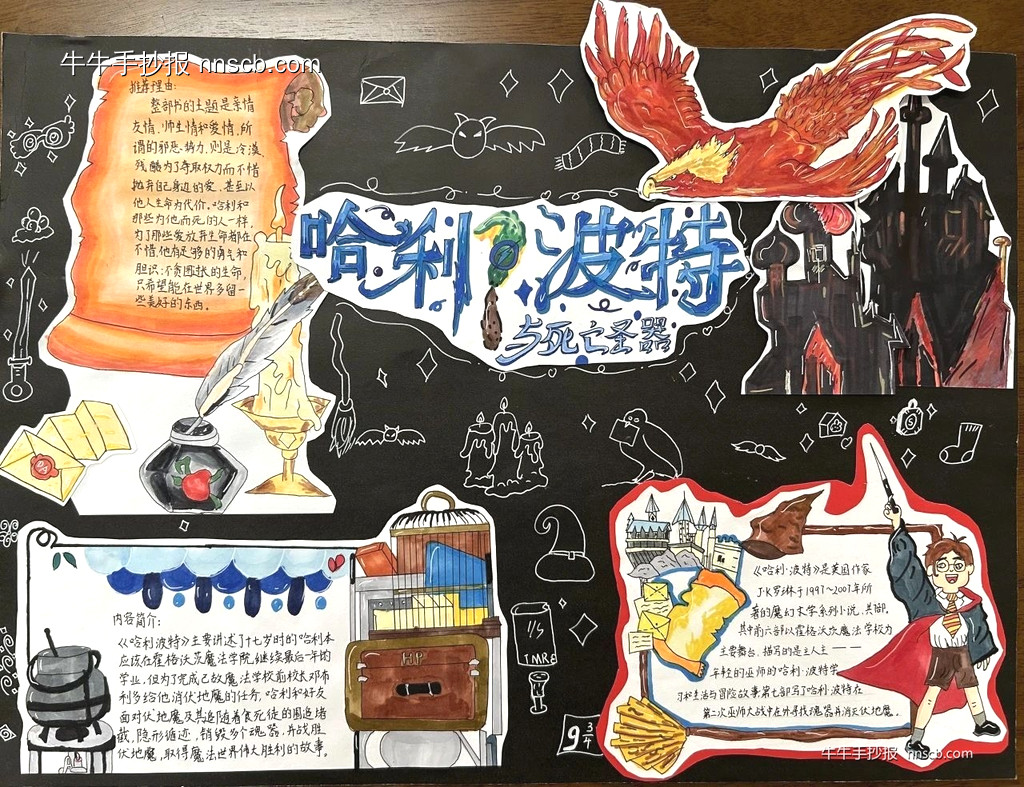 牛牛手抄报 nnscb.com
推荐理由:
整部书的主题是亲情
友情、师生情和爱情,所
谓的邪恶势力,则是冷漠、
残酷为了夺取权力而不惜
抛弃自己身边的爱,甚至以
他人生命为代价。哈利和
那些为他而死的人一样,
为了那些爱放弃生命都在
不惜,他有足够的勇气和
胆识:不贪图长的生命,
只希望能在世界多留一
些美好的东西。
哈利波特
与死亡圣器
内容简介:
《哈利波特》主要讲述了十七岁时的哈利本
应该在霍格沃茨魔法学院,继续最后一年的
学业,但为了完成已故魔法学校前校长邓布
利多给他消伏地魔的任务,哈利和好友
面对伏地魔及其追随着食死徒的围追堵
截,隐形循迹,销毁多个魂器,并战胜
伏地魔,取得魔法世界伟大胜利的故事。
HP
TMRE
9 3/4
《哈利·波特》是英国作家
J·K罗琳于1997~2007年所
著的魔幻文学系列小说,共7部,
其中前六部以霍格沃茨魔法学校为
主要舞台,描写的是主人主——
年轻的巫师的哈利·波特学
习生活与冒险故事第七部写了哈利·波特在
第二次巫师大战中在外寻找魂器并消灭伏地魔。
牛牛手抄报 nnscb.com